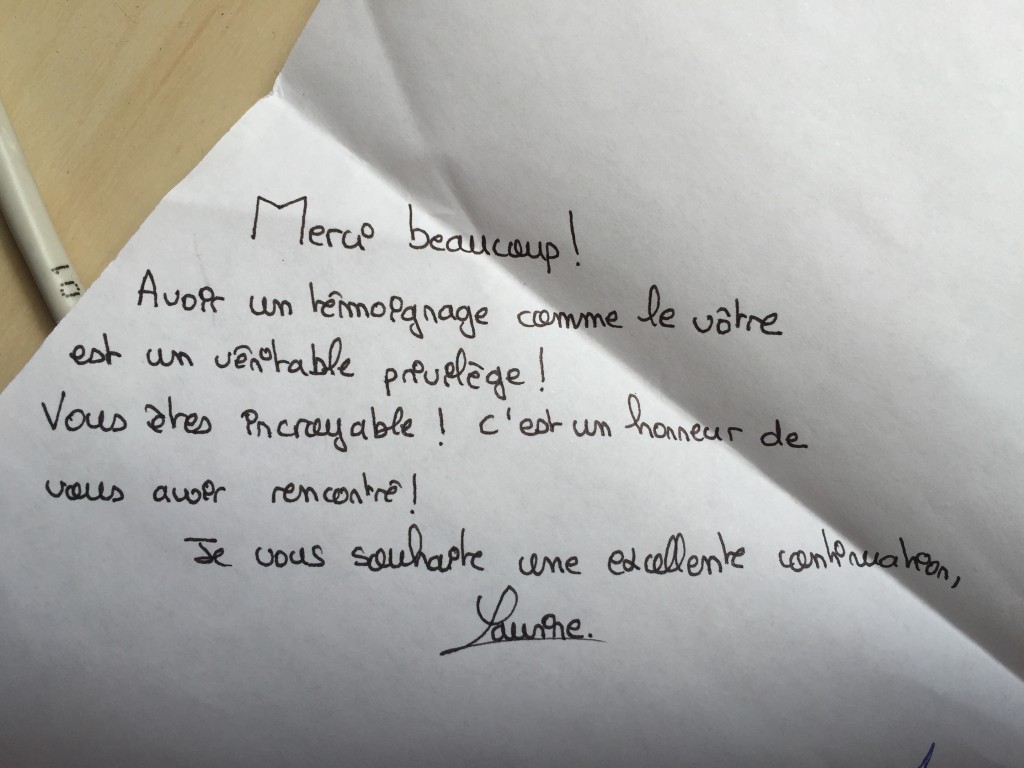 Merci beaucoup !
Avoir un témoignage comme le vôtre
est un véritable privilège !
Vous êtes incroyable ! C'est un honneur de
vous avoir rencontré !
Je vous souhaite une excellente continuation,
Laurine.
1.0